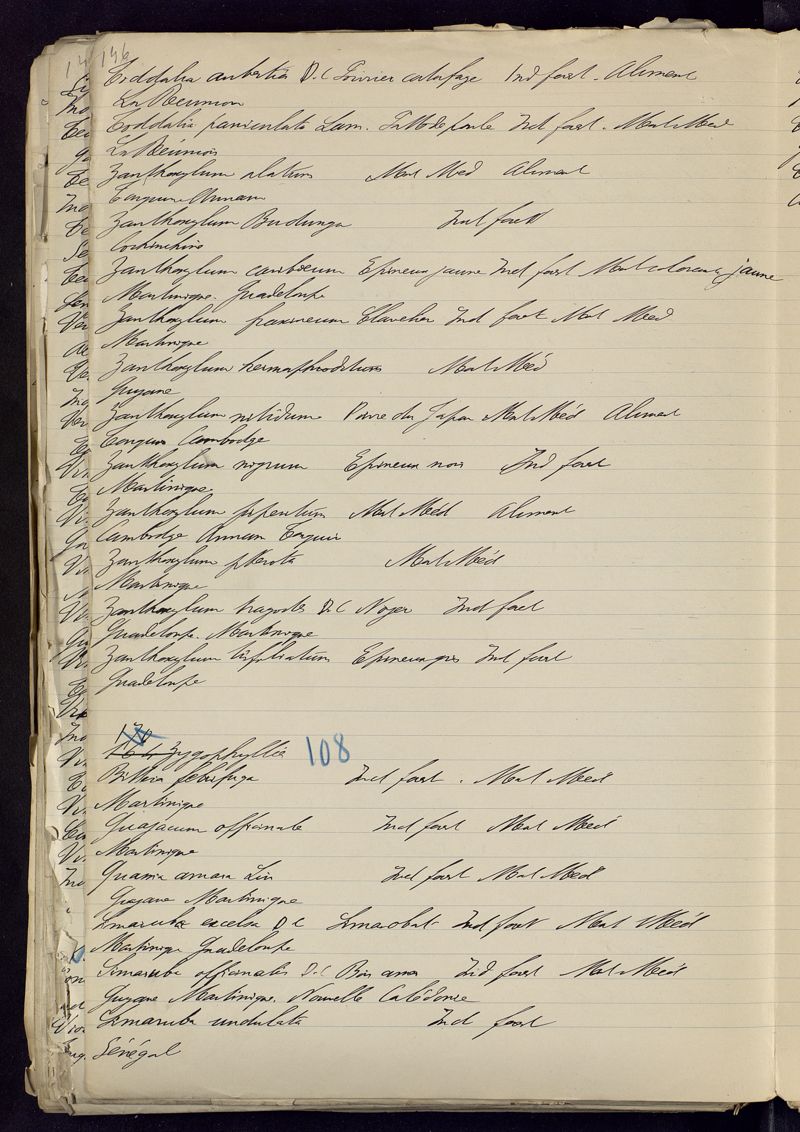 146
Toddalia D.C Ind forest. Aliment
La Réunion
Toddalia paniculata Lam. Ind forest. Mat Méd
La Réunion
Zanthoxylum alatum Mat Méd Aliment
Zanthoxylum Budunga Ind forest
Cochinchine
Zanthoxylum caribœum Epineux jaune Ind forest Mat colorante jaune
Martinique. Guadeloupe
Zanthoxylum fraxineum Clavelier Ind forest Mat Méd
Martinique
Zanthoxylum hermaphroditum Mat Méd
Guyane
Zanthoxylum nitidum Poivre du Japon Mat Méd Aliment
Tonquin Cambodge
Zanthoxylum nigrum Epineux noir Ind forest
Martinique
Zanthoxylum piperitum Mat Méd Aliment
Cambodge Annam Tonquin
Zanthoxylum pterota Mat Méd
Martinique
Zanthoxylum tragodes D.C Noyer Ind forest
Guadeloupe. Martinique
Zanthoxylum trifoliatum Epineux gris Ind forest
Guadeloupe
Zygophyllée 108
febrifuga Ind forest. Mat Méd
Martinique
Guajacum officinale Ind forest Mat Méd
Martinique
amara Lin Ind forest Mat Méd
Guyane Martinique
Simaruba excelsa D C Ind forest Mat Méd
Martinique Guadeloupe
Simaruba officinalis D.C Bois amer Ind forest Mat Méd
Guyane Martinique. Nouvelle Calédonie
Simaruba undulata Ind forest
Sénégal